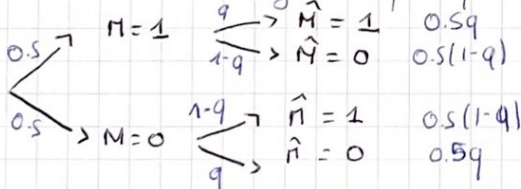 0.5 M = 1 q M̂ = 1 0.5q
1-q M̂ = 0 0.5(1-q)
0.5 M = 0 1-q M̂ = 1 0.5(1-q)
q M̂ = 0 0.5q